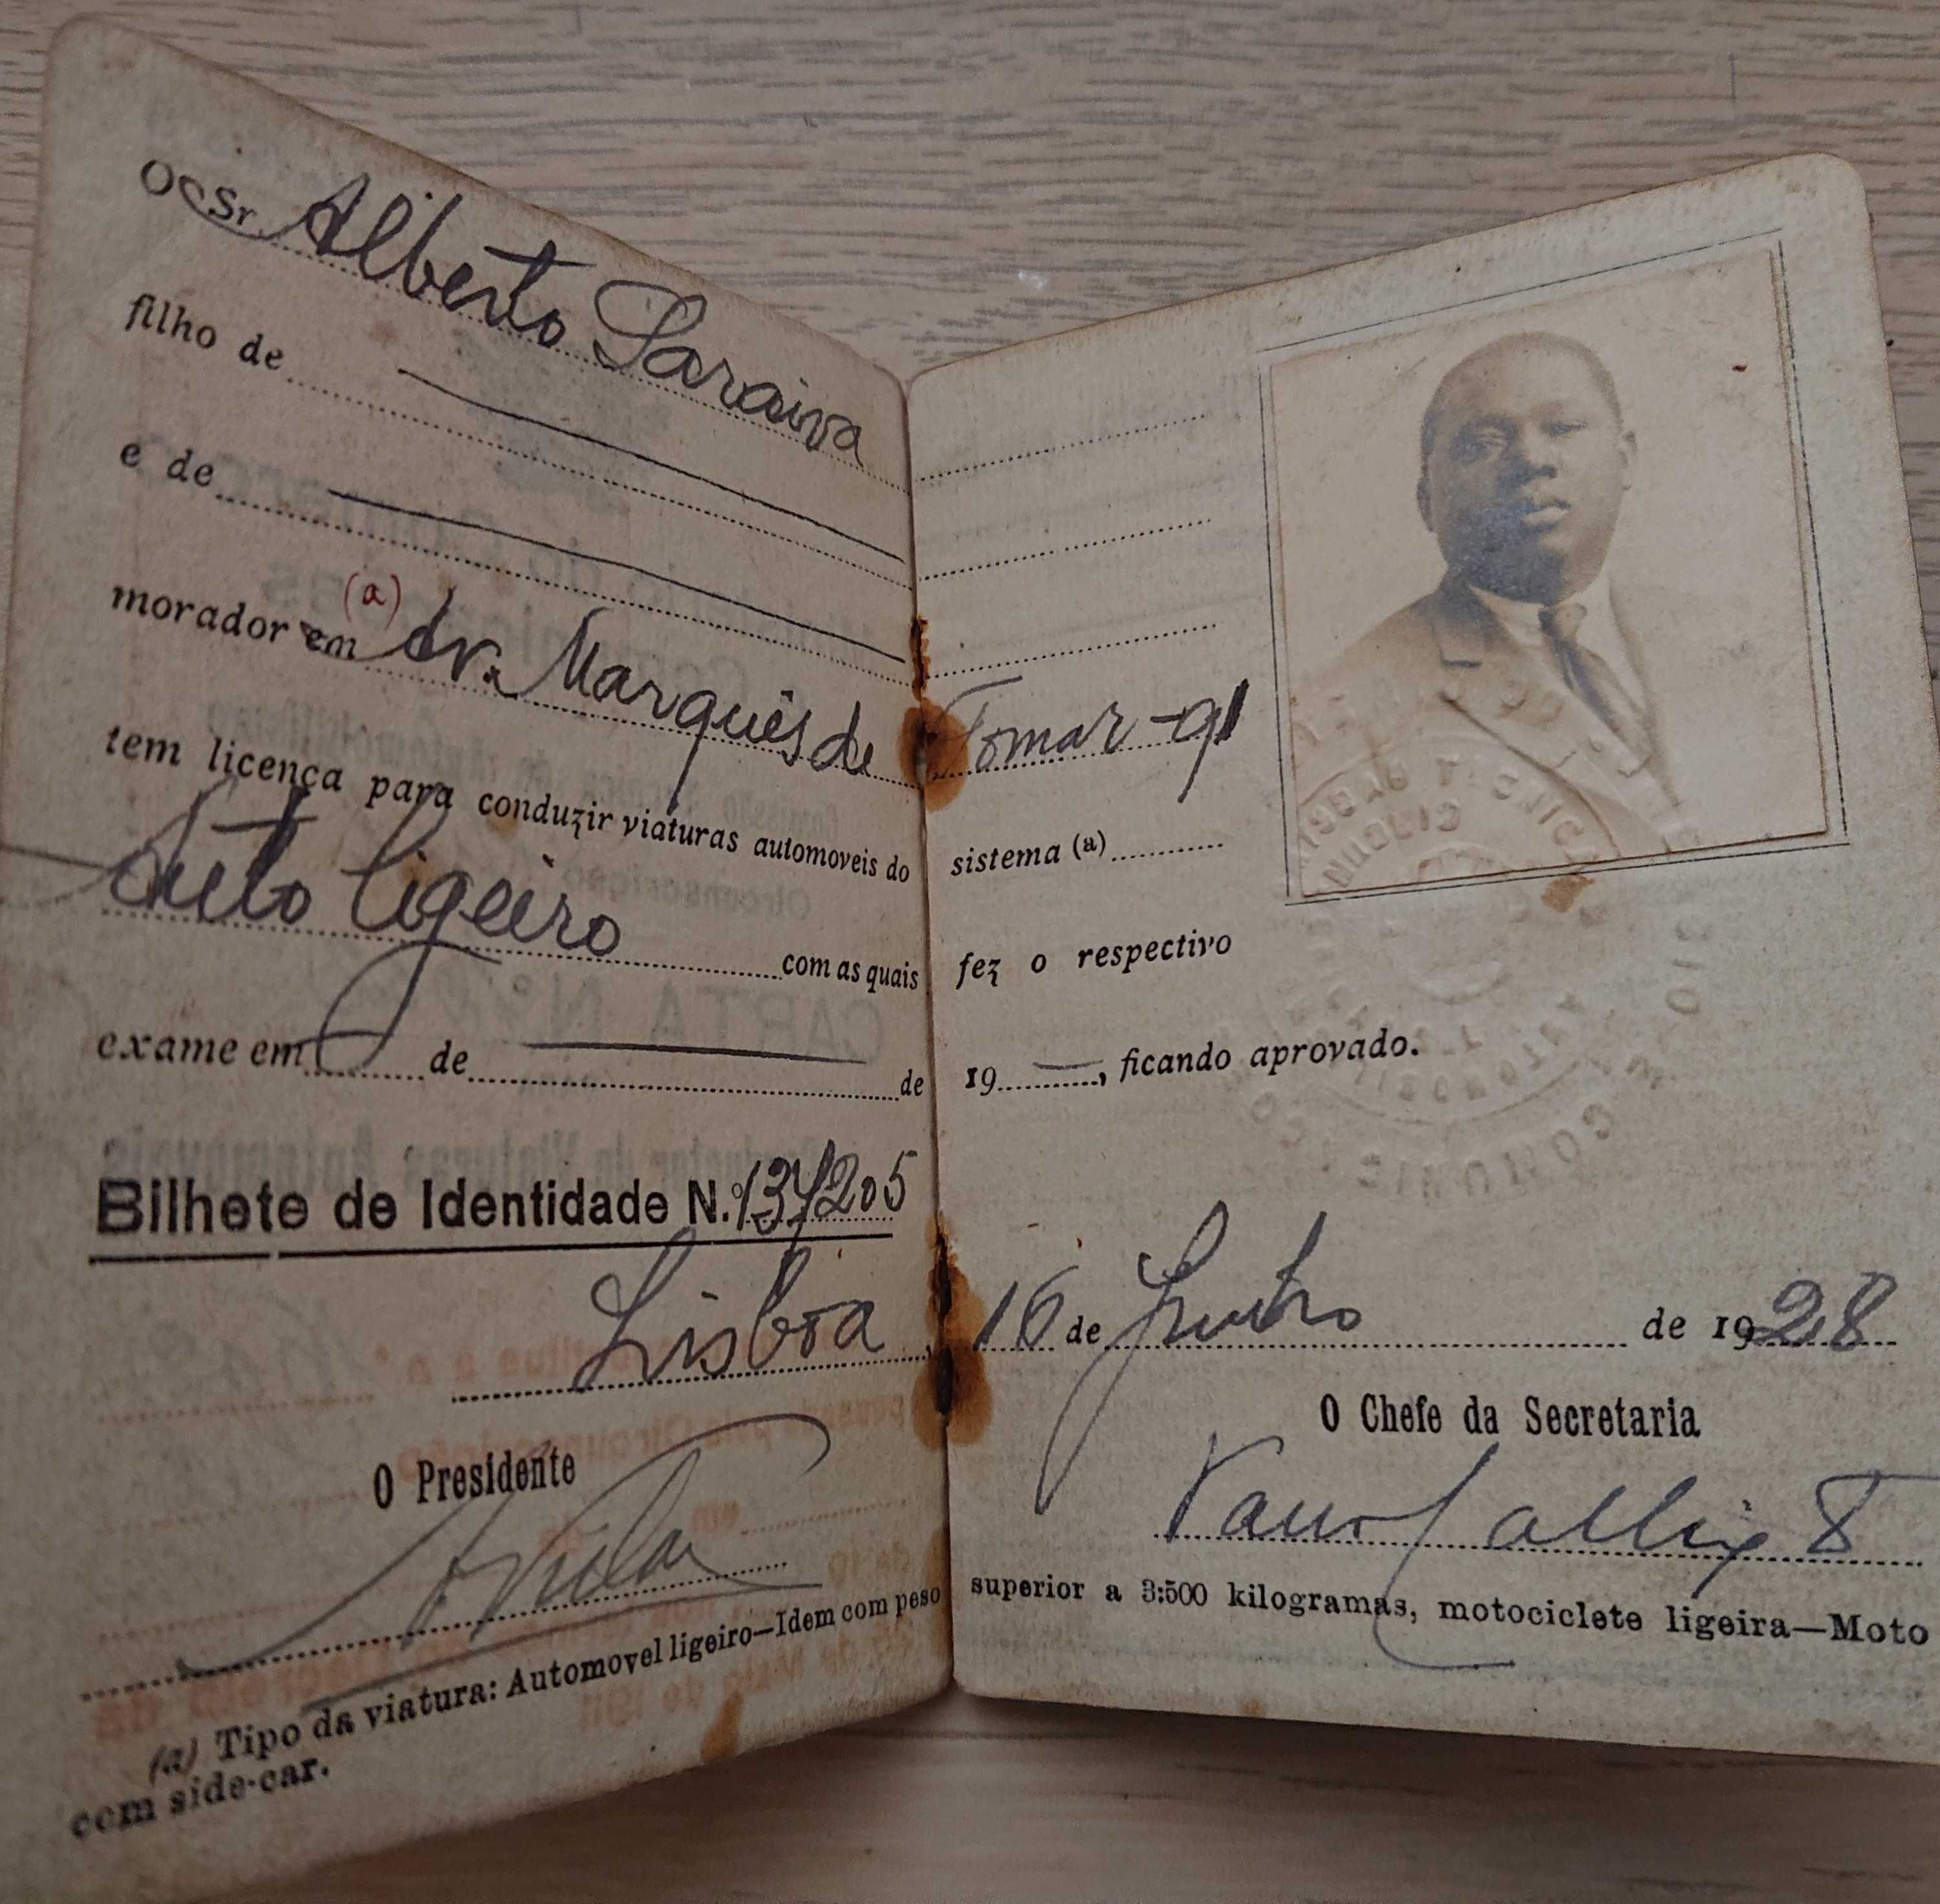 O Sr. Alberto Saraiva
filho de
e de
(a)
morador em Av. Marquês de Tomar - 91
tem licença para conduzir viaturas automoveis do sistema (a)
Auto ligeiro com as quais fez o respectivo
exame em de de 19 , ficando aprovado.
Bilhete de Identidade N.º
Lisboa 16 de Junho de 1928
O Presidente
O Chefe da Secretaria
(a) Tipo da viatura: Automovel ligeiro—Idem com peso superior a 3:500 kilogramas, motociclete ligeira—Moto
com side-car.